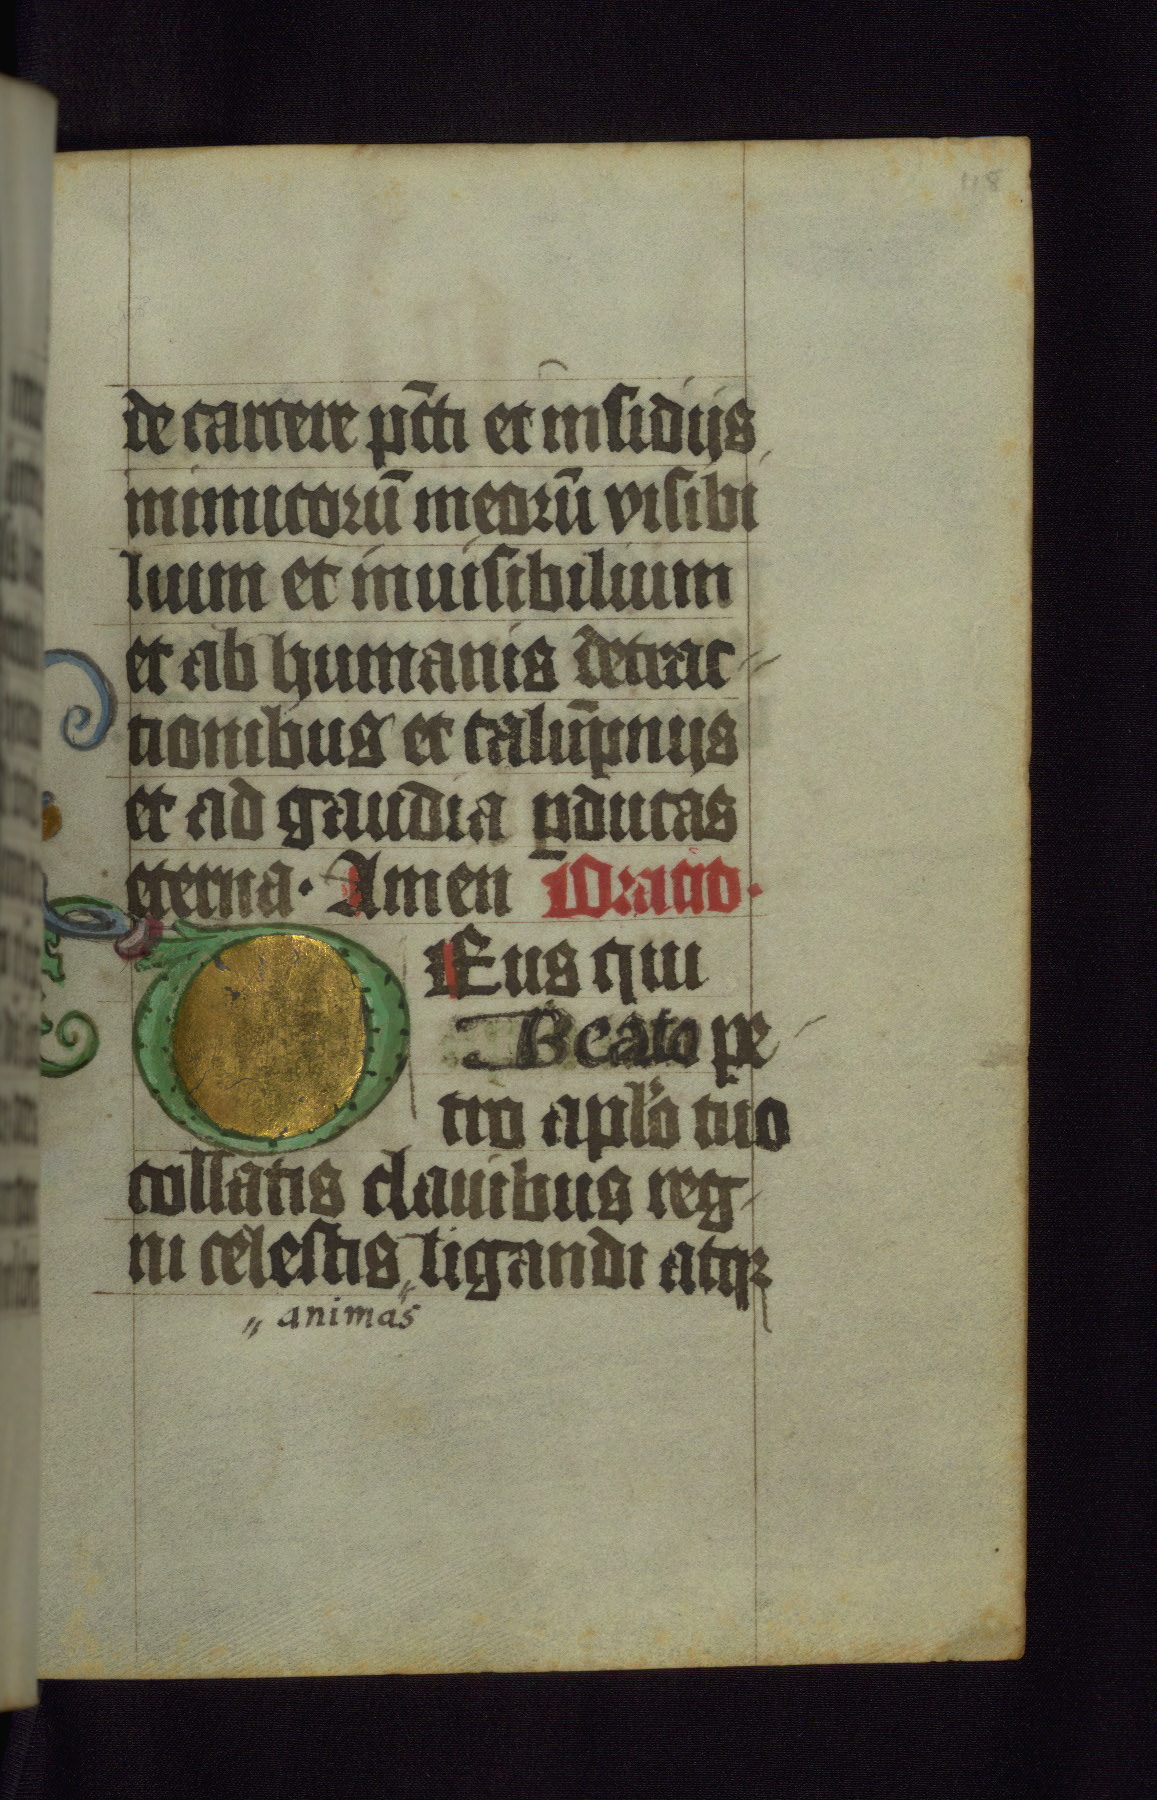 118
de carcere pcc̄ti et insidijs
inimicorū meorū visibi
lium et inuisibilium
et ab humanis detrac
tionibus et calūpnijs
et ad gaudia ꝓducas
eterna. Amen Oratio.
DEus qui
Beato pe
tro aplo tuo
collatis clauibus reg
ni celestis „ ligandi atqꝫ
„ animas